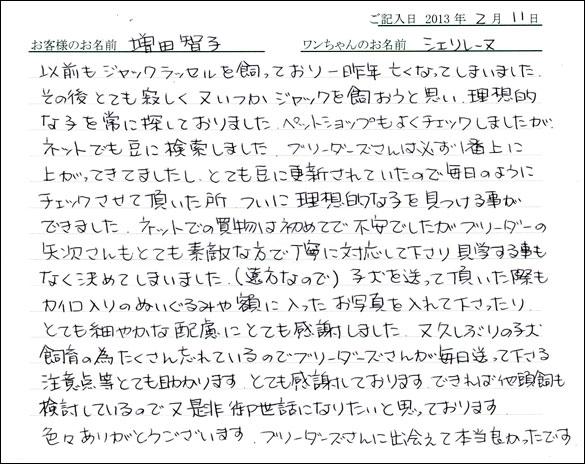 ご記入日 2013年 2月 11日
お客様のお名前 増田智子 ワンちゃんのお名前 シェリレーヌ
以前もジャックラッセルを飼っており一昨年亡くなってしまいました.
その後とても寂しく又いつかジャックを飼おうと思い、理想的
な子を常に探しておりました.ペットショップもよくチェックしましたが、
ネットでも豆に検索しました. ブリーダーズさんは必ず1番上に
上がってきてましたし、とても豆に更新されていたので毎日のように
チェックさせて頂いた所 ついに理想的な子を見つける事が
できました. ネットでの買物は初めてで不安でしたがブリーダーの
矢次さんもとても素敵な方で丁寧に対応して下さり見学する事も
なく決めてしまいました.(遠方なので)子犬を送って頂いた際も
カイロ入りのぬいぐるみや額に入ったお写真を入れて下さったり
とても細やかな配慮にとても感謝しました. 又久しぶりの子犬
飼育の為たくさん忘れているのでブリーダーズさんが毎日送って下さる
注意点等とても助かります.とても感謝しております.できれば他頭飼も
検討しているので又是非御世話になりたいと思っております.
色々ありがとうございます. ブリーダーズさんに出会えて本当良かったです